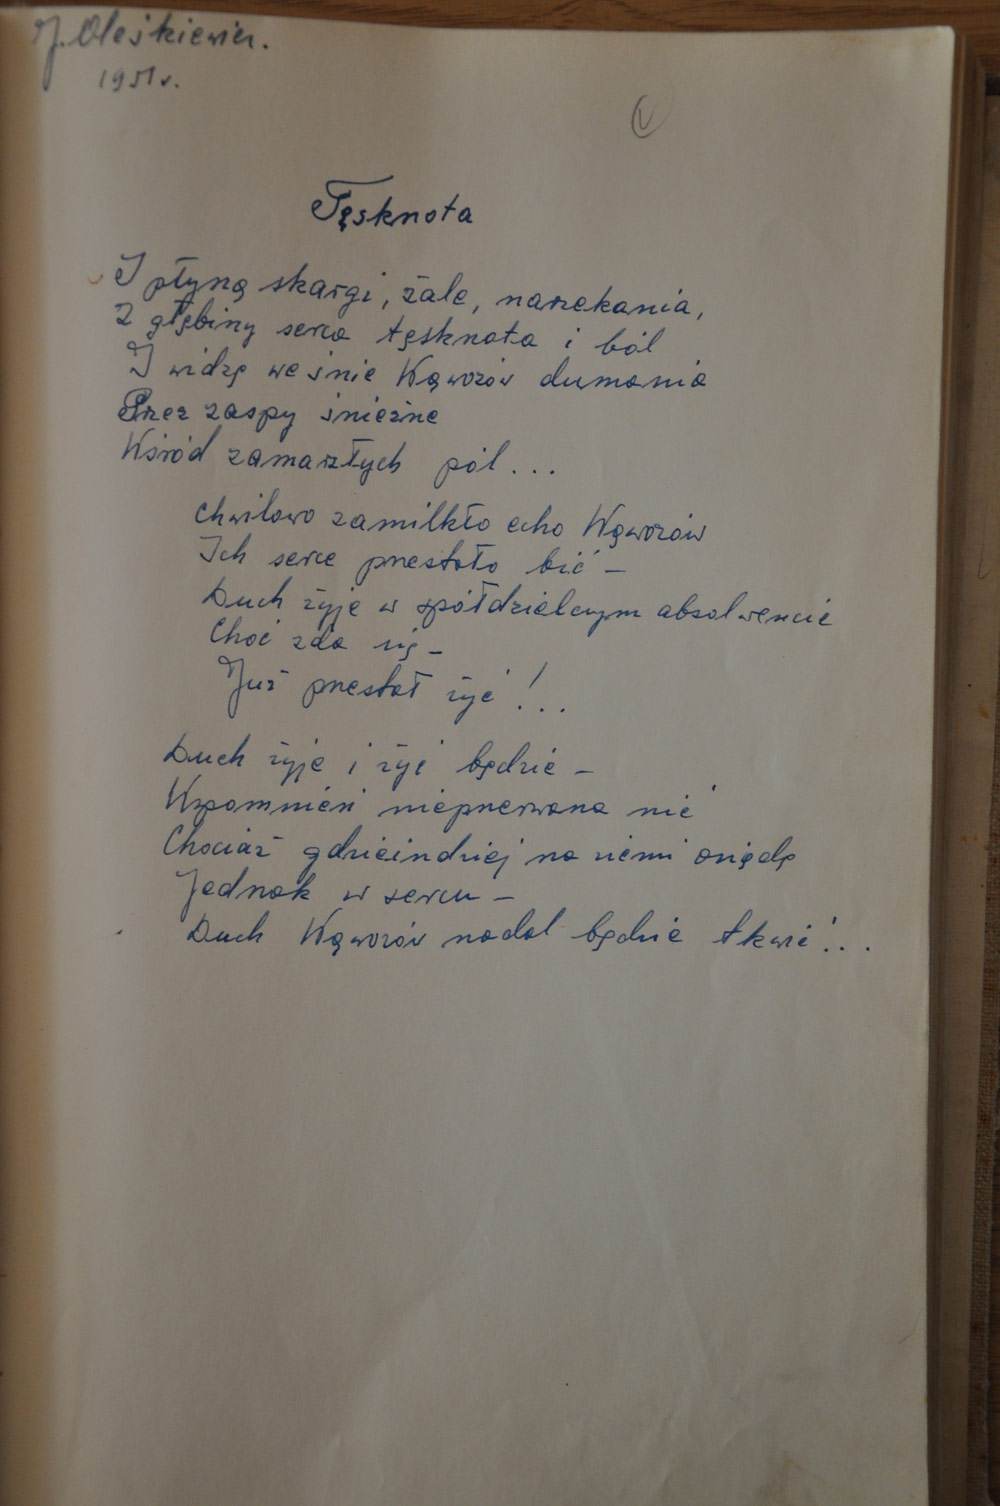 J. Oleśkiewicz.
1951 r.
V
Tęsknota
I płyną skargi, żale, narzekania,
Z głębiny serca tęsknota i ból
I widzę we śnie Wąwozów dumania
Przez zaspy śnieżne
Wśród zamarzłych pól...
Chwilowo zamilkło echo Wąwozów
Ich serce przestało bić –
Duch żyje w spółdzielczym absolwencie
Choć zda się –
Już przestał żyć!...
Duch żyje i żyć będzie –
Wspomnień nieprzerwana nić
Chociaż gdzieindziej na ziemi osiędę
Jednak w sercu –
Duch Wąwozów nadal będzie tkwić!...